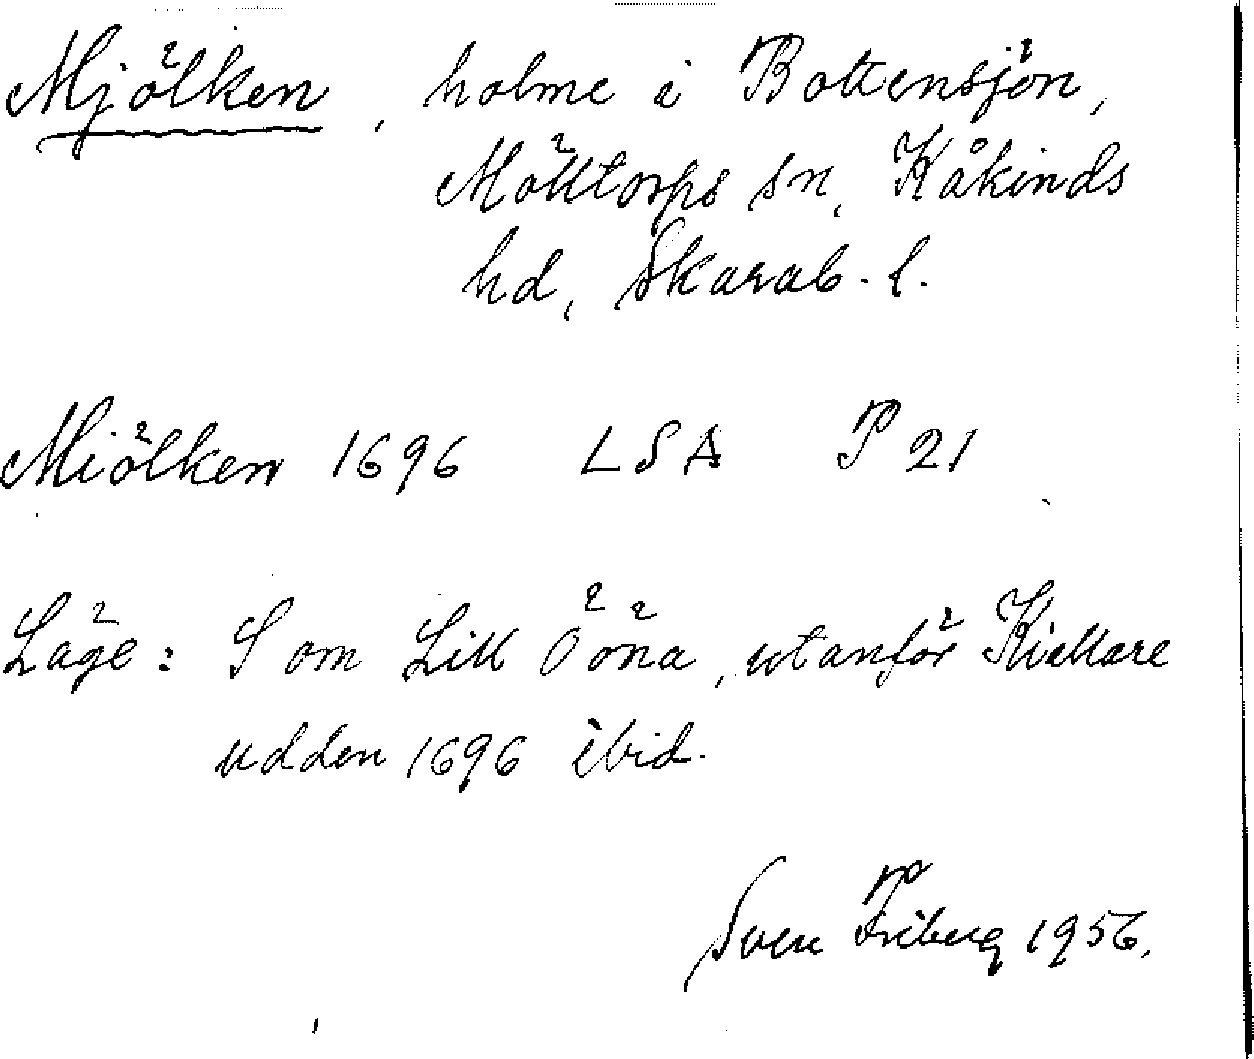 Mjölken, holme i Bottensjön,
Mölltorps sn, Kåkinds
hd, Skarab. l.
Miölken 1696 LSA P 21
Läge: S om Lill Ööna, utanför Kiellare
udden 1696 ibid.
Sven Friberg 1956.